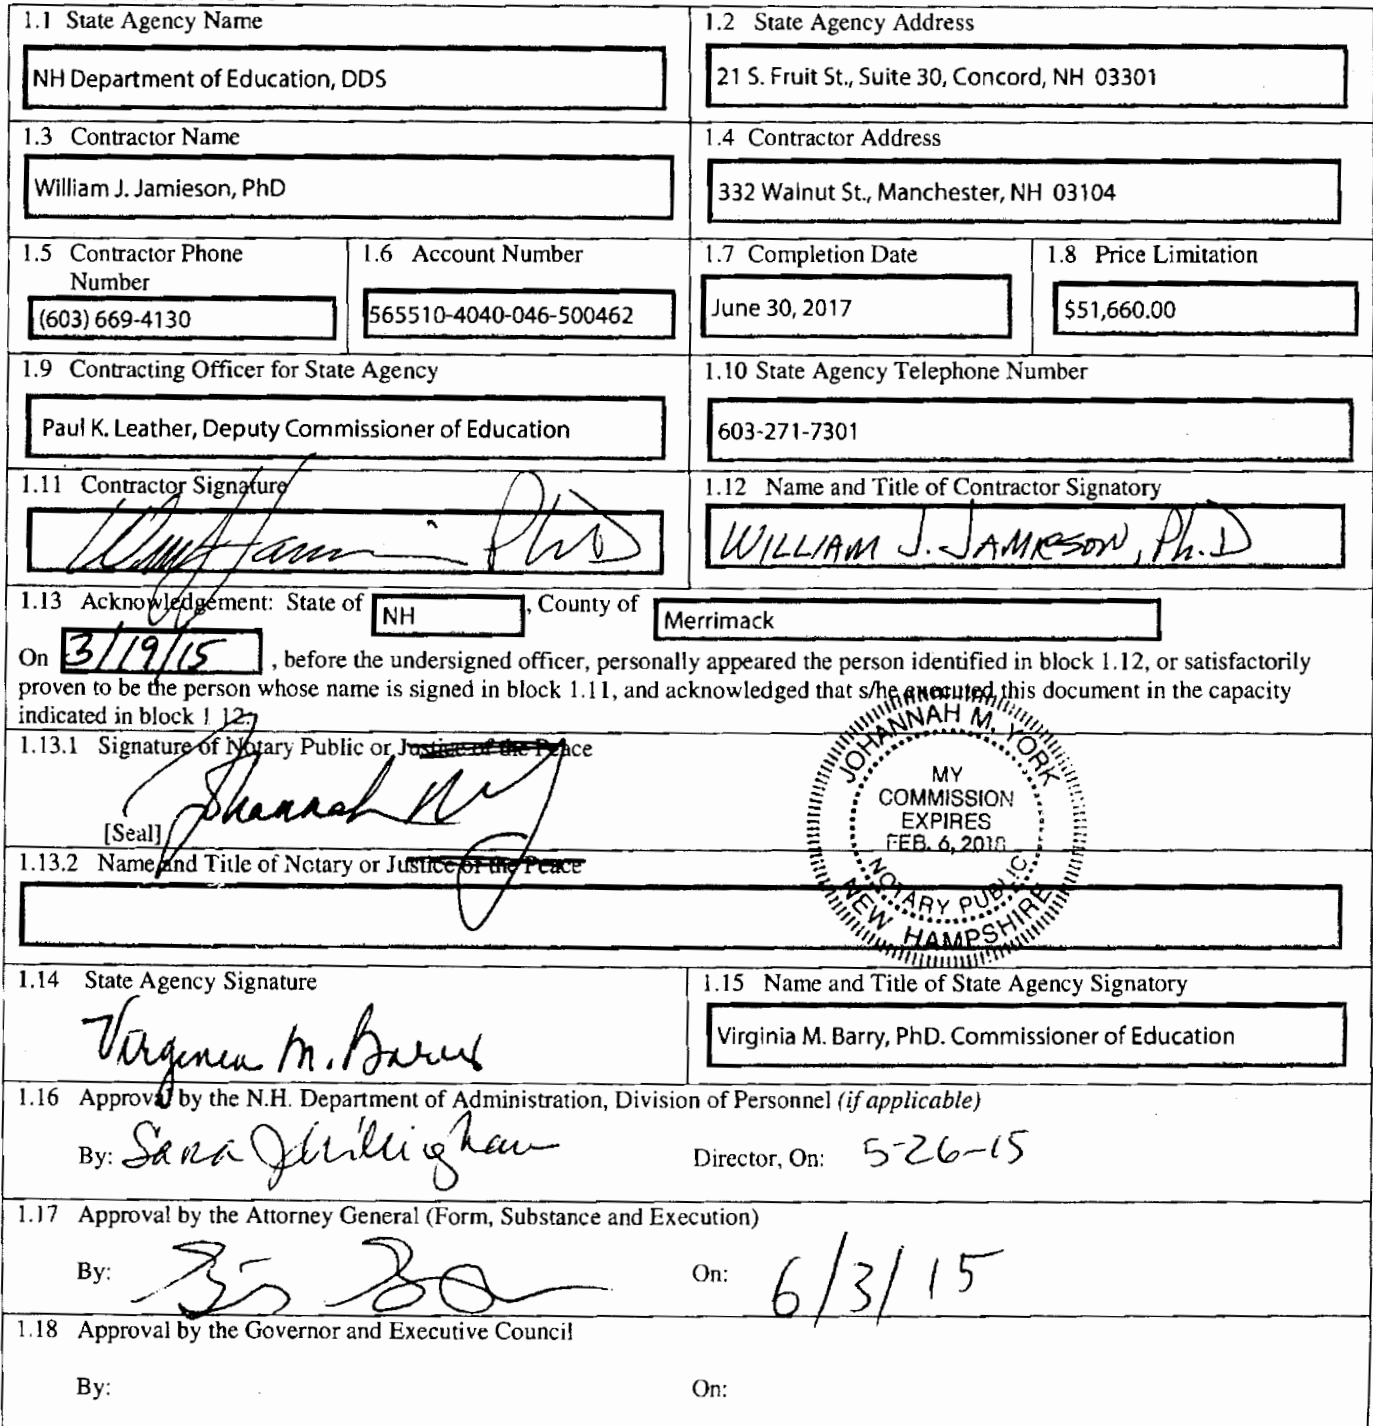 1.1 State Agency Name
NH Department of Education, DDS
1.2 State Agency Address
21 S. Fruit St., Suite 30, Concord, NH 03301
1.3 Contractor Name
William J. Jamieson, PhD
1.4 Contractor Address
332 Walnut St., Manchester, NH 03104
1.5 Contractor Phone
Number
(603) 669-4130
1.6 Account Number
565510-4040-046-500462
1.7 Completion Date
June 30, 2017
1.8 Price Limitation
$51,660.00
1.9 Contracting Officer for State Agency
Paul K. Leather, Deputy Commissioner of Education
1.10 State Agency Telephone Number
603-271-7301
1.11 Contractor Signature
PhD
1.12 Name and Title of Contractor Signatory
WILLIAM J. JAMIESON, Ph.D
1.13 Acknowledgement: State of NH, County of Merrimack
On 3/19/15, before the undersigned officer, personally appeared the person identified in block 1.12, or satisfactorily
proven to be the person whose name is signed in block 1.11, and acknowledged that s/he executed this document in the capacity
indicated in block 1.12.
1.13.1 Signature of Notary Public or Justice of the Peace
Johannah
[Seal]
JOHANNAH M. YORK
MY
COMMISSION
EXPIRES
FEB. 6, 2018
NOTARY PUBLIC
NEW HAMPSHIRE
1.13.2 Name and Title of Notary or Justice of the Peace
1.14 State Agency Signature
Virginia M. Barry
1.15 Name and Title of State Agency Signatory
Virginia M. Barry, PhD. Commissioner of Education
1.16 Approval by the N.H. Department of Administration, Division of Personnel (if applicable)
By: Sara J Willingham Director, On: 5-26-15
1.17 Approval by the Attorney General (Form, Substance and Execution)
By: On: 6/3/15
1.18 Approval by the Governor and Executive Council
By: On: